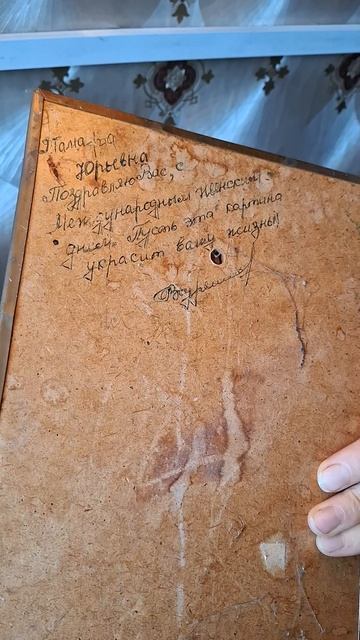 Тамара
Юрьевна
Поздравляю Вас, с
Международным Женским
днём. Пусть эта картина
украсит вашу жизнь!